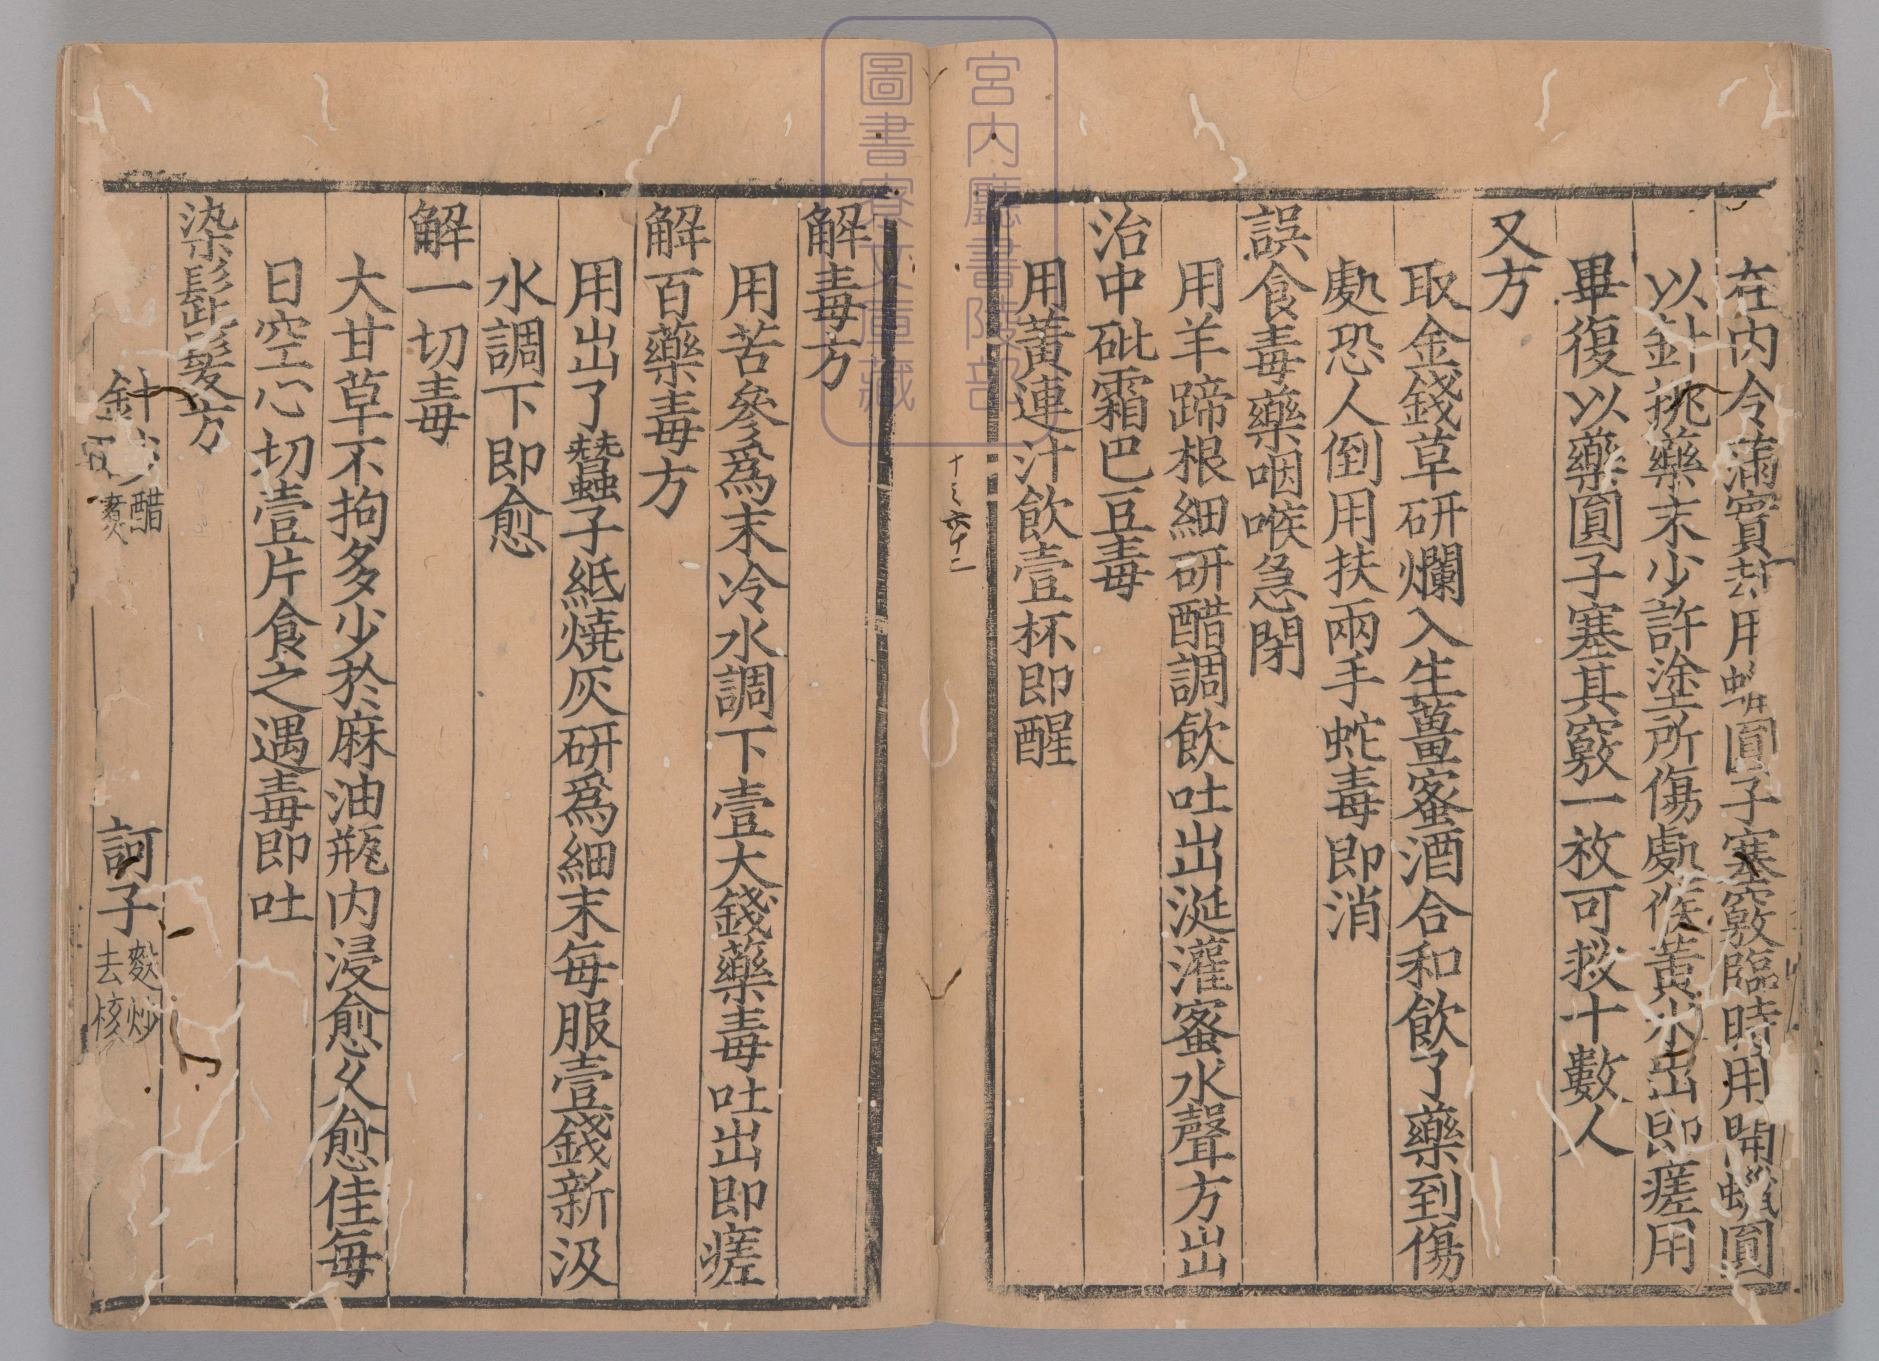 在内令滿實却用蠟圓子塞竅臨時用開蠟圓
以針挑藥末少許塗所傷處候黃水出即瘥用
畢復以藥圓子塞其竅一枚可救十數人
又方
取金錢草研爛入生薑蜜酒合和飲了藥到傷
處恐人倒用扶兩手蛇毒即消
誤食毒藥咽喉急閉
用羊蹄根細研醋調飲吐出涎灌蜜水聲方出
治中砒霜巴豆毒
用黃連汁飲壹杯即醒
十之六十二
解毒方
用苦參爲末冷水調下壹大錢藥毒吐出即瘥
解百藥毒方
用出了蠶子紙燒灰研爲細末每服壹錢新汲
水調下即愈
解一切毒
大甘草不拘多少於麻油瓶内浸愈久愈佳每
日空心切壹片食之遇毒即吐
染髭髮方
針砂醋 訶子麩炒去核
宮内廳書陵部
圖書寮文庫藏